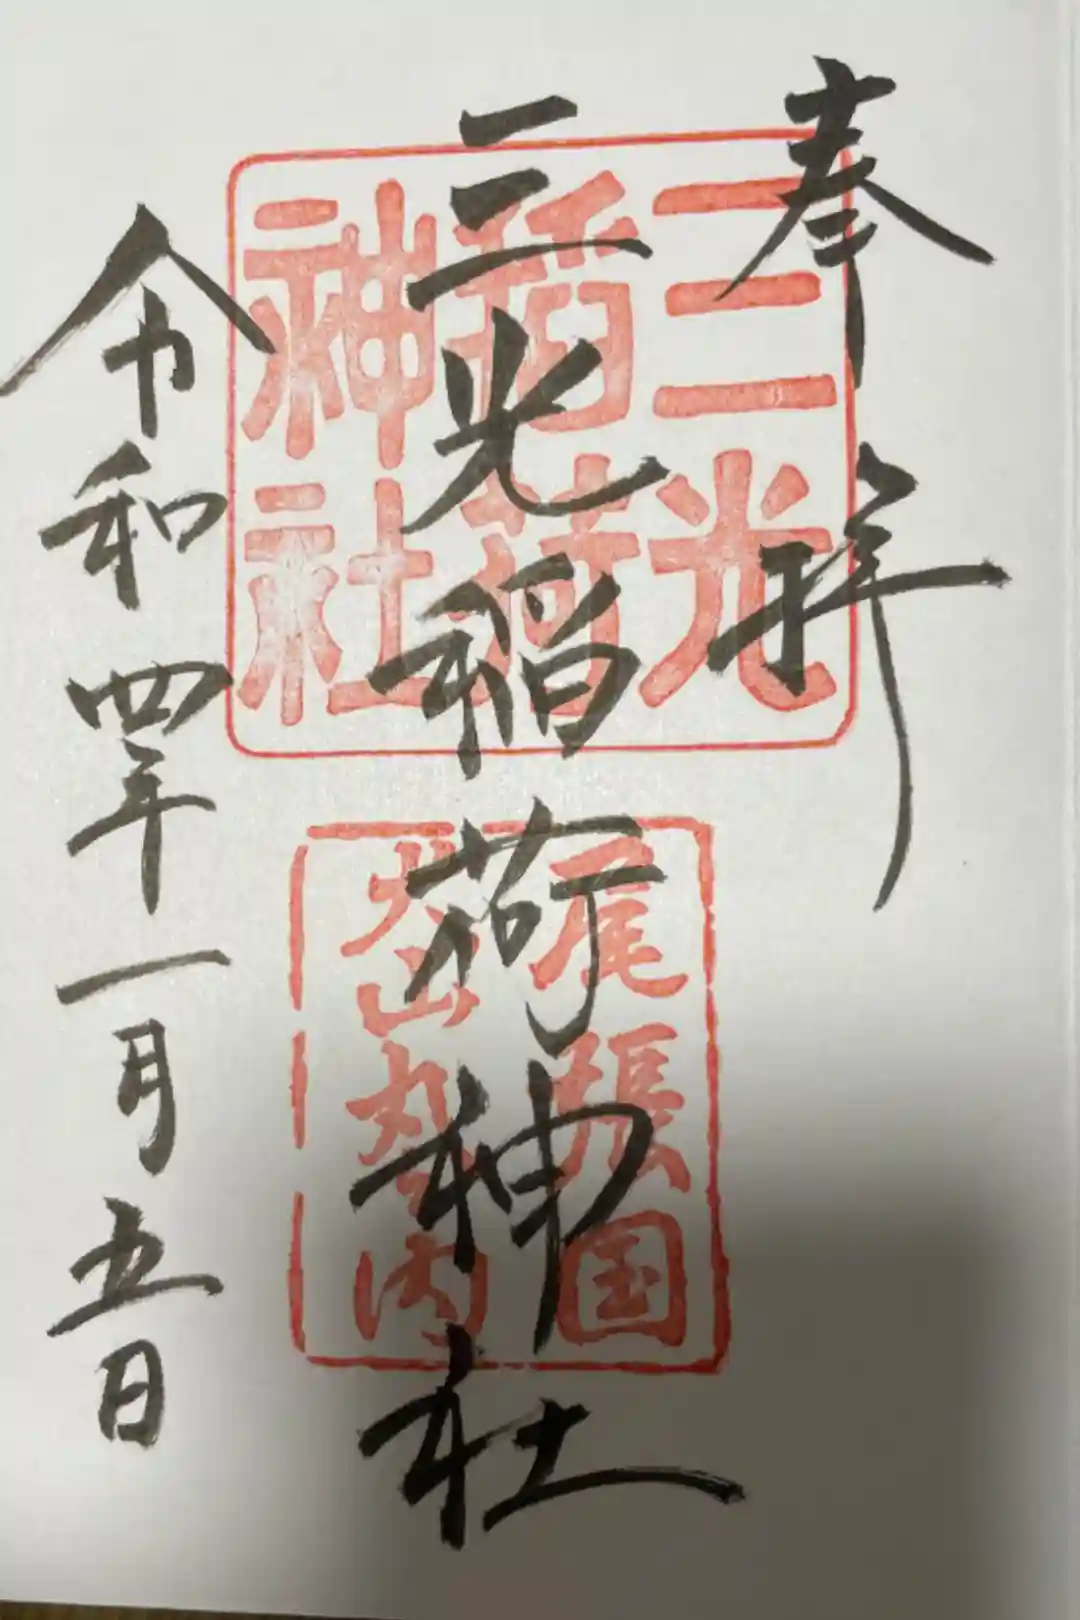 奉拝
三光稲荷神社
令和四年一月五日
三光
稲荷
神社
尾張国
犬山丸之内